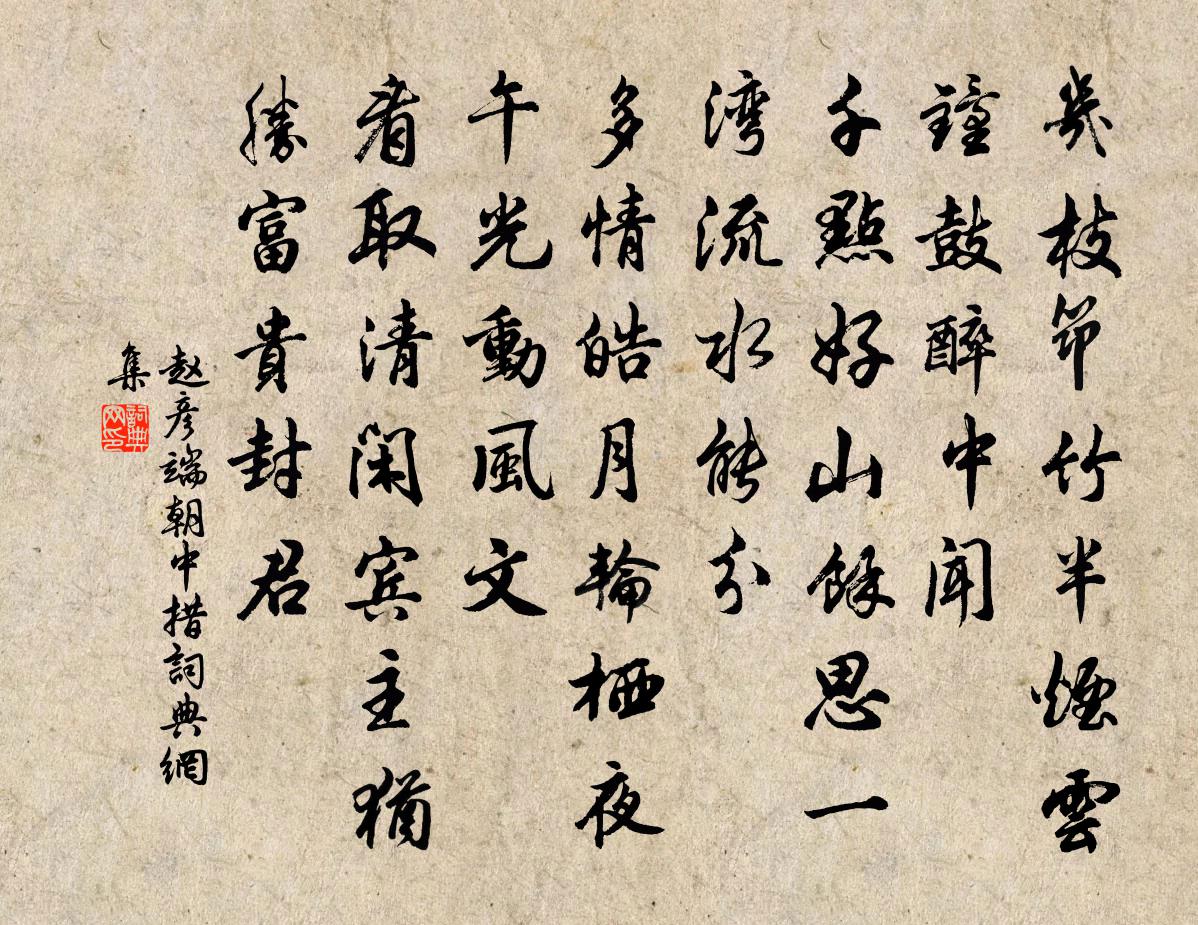 幾枝筇竹半煙雲
鐘鼓醉中聞
千點好山餘思一
湾流水能分
多情皓月輪栖夜
午光動風文
看取清閑宾主猶
勝富貴封君
赵彦端朝中措詞典網
集
詞典
网印